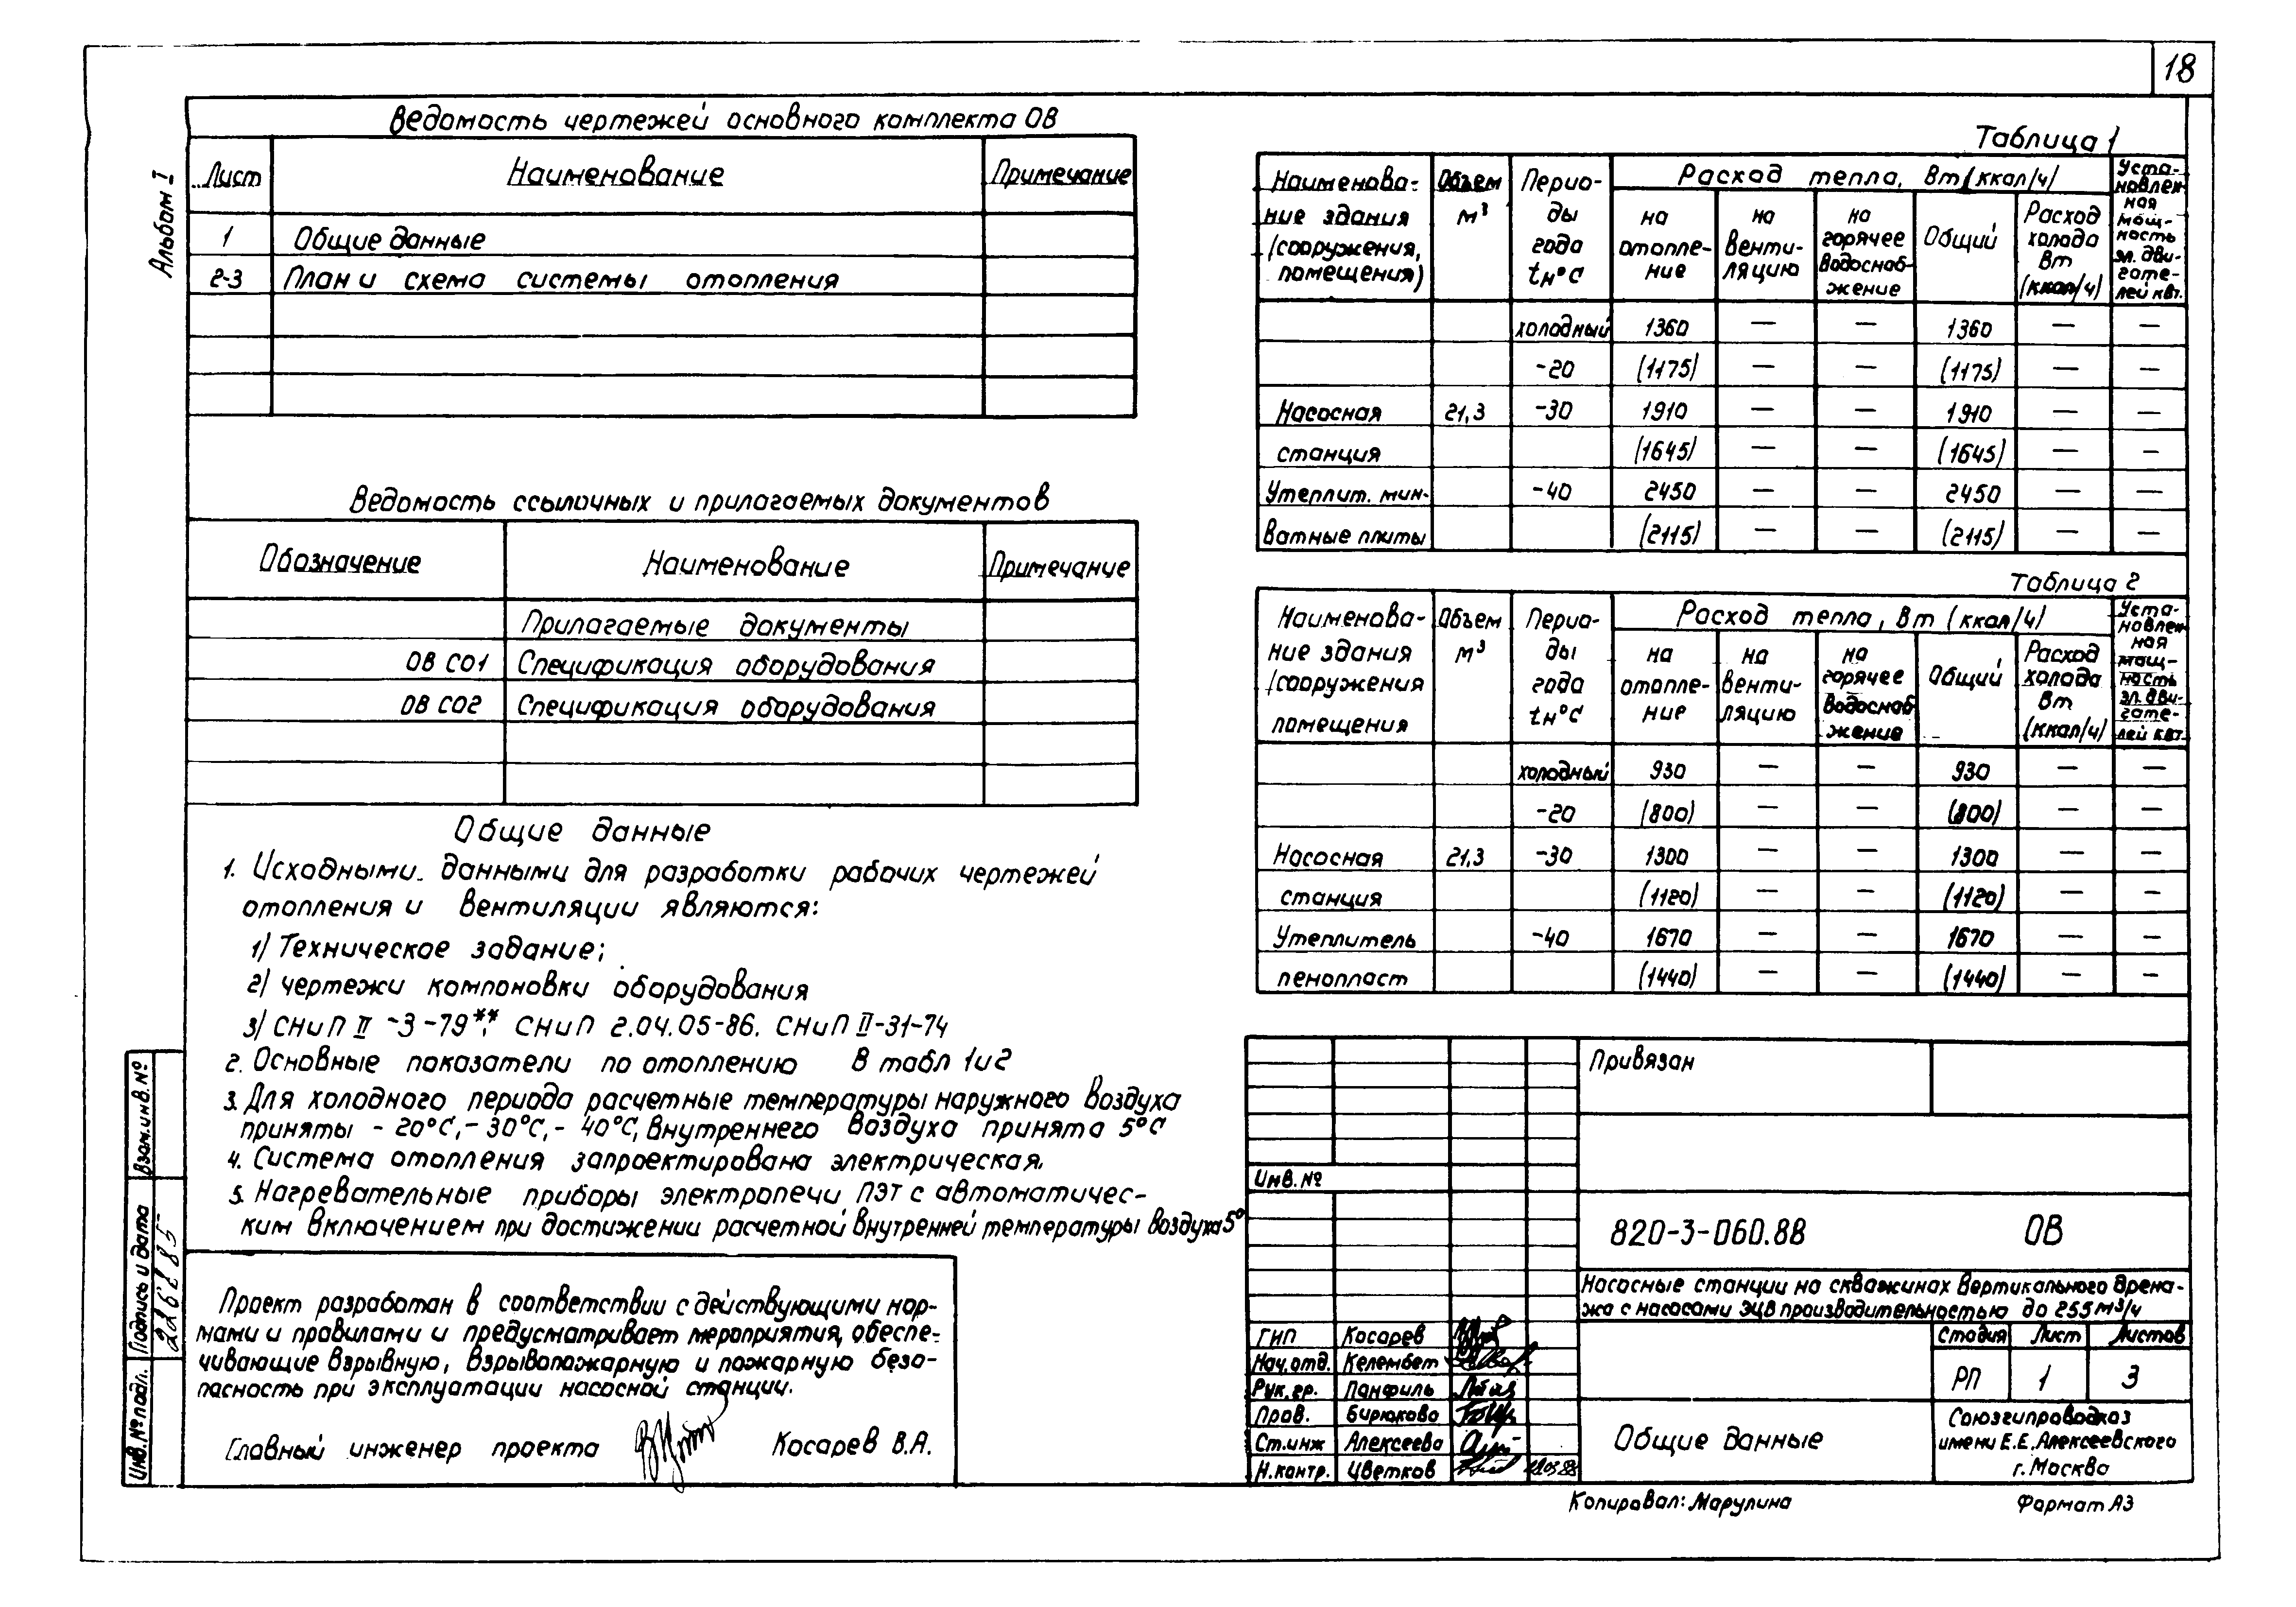 18
Альбом I
Ведомость чертежей основного комплекта ОВ
Лист Наименование Примечание
1 Общие данные
2-3 План и схема системы отопления
Ведомость ссылочных и прилагаемых документов
Обозначение Наименование Примечание
Прилагаемые документы
ОВ СО1 Спецификация оборудования
ОВ СО2 Спецификация оборудования
Общие данные
1. Исходными данными для разработки рабочих чертежей
отопления и вентиляции являются:
1) Техническое задание;
2) чертежи компоновки оборудования
3) СНиП II -3-79**. СНиП 2.04.05-86. СНиП II-31-74
2. Основные показатели по отоплению в табл 1и2
3. Для холодного периода расчетные температуры наружного воздуха
приняты - 20°С,- 30°С,- 40°С, внутреннего воздуха принята 5°С
4. Система отопления запроектирована электрическая.
5. Нагревательные приборы электропечи ПЭТ с автоматичес-
ким включением при достижении расчетной внутренней температуры воздуха 5°
Проект разработан в соответствии с действующими нор-
мами и правилами и предусматривает мероприятия, обеспе-
чивающие взрывную, взрывопожарную и пожарную безо-
пасность при эксплуатации насосной станции.
Главный инженер проекта Косарев В.А.
Взам.инв.№
Подпись и дата
Инв.№подл.
Таблица 1
Наименова- Объем Перио- Расход тепла, Вт(ккал/ч) Уста-
новлен-
ние здания м³ ды на на на Общий Расход ная
(сооружения, года отопле- венти- горячее холода мощ-
помещения) tн°С ние ляцию водоснаб- Вт ность
жение (ккал/ч) эл.дви-
гате-
лей квт.
холодный 1360 — — 1360 — —
-20 (1175) — — (1175) — —
Насосная 21,3 -30 1910 — — 1910 — —
станция (1645) — — (1645) — —
Утеплит. мин- -40 2450 — — 2450 — —
ватные плиты (2115) — — (2115) — —
Таблица 2
Наименова- Объем Перио- Расход тепла, Вт (ккал/ч) Уста-
новлен-
ние здания м³ ды на на на Общий Расход ная
(сооружения года отопле- венти- горячее холода мощ-
помещения tн°С ние ляцию водоснаб- Вт ность
жение (ккал/ч) эл.дви-
гате-
лей квт.
холодный 930 — — 930 — —
-20 (800) — — (800) — —
Насосная 21,3 -30 1300 — — 1300 — —
станция (1120) — — (1120) — —
Утеплитель -40 1670 — — 1670 — —
пенопласт (1440) — — (1440) — —
Привязан
Инв.№
820-3-060.88 ОВ
Насосные станции на скважинах вертикального дрена-
жа с насосами ЭЦВ производительностью до 255 м³/ч
ГИП Косарев
Нач.отд. Келембет
Рук.гр. Панфиль
Пров. Бирюкова
Ст.инж Алексеева
Н.контр. Цветков
Стадия Лист Листов
РП 1 3
Общие данные
Союзгипроводхоз
имени Е.Е.Алексеевского
г.Москва
Копировал: Марулина Формат А3